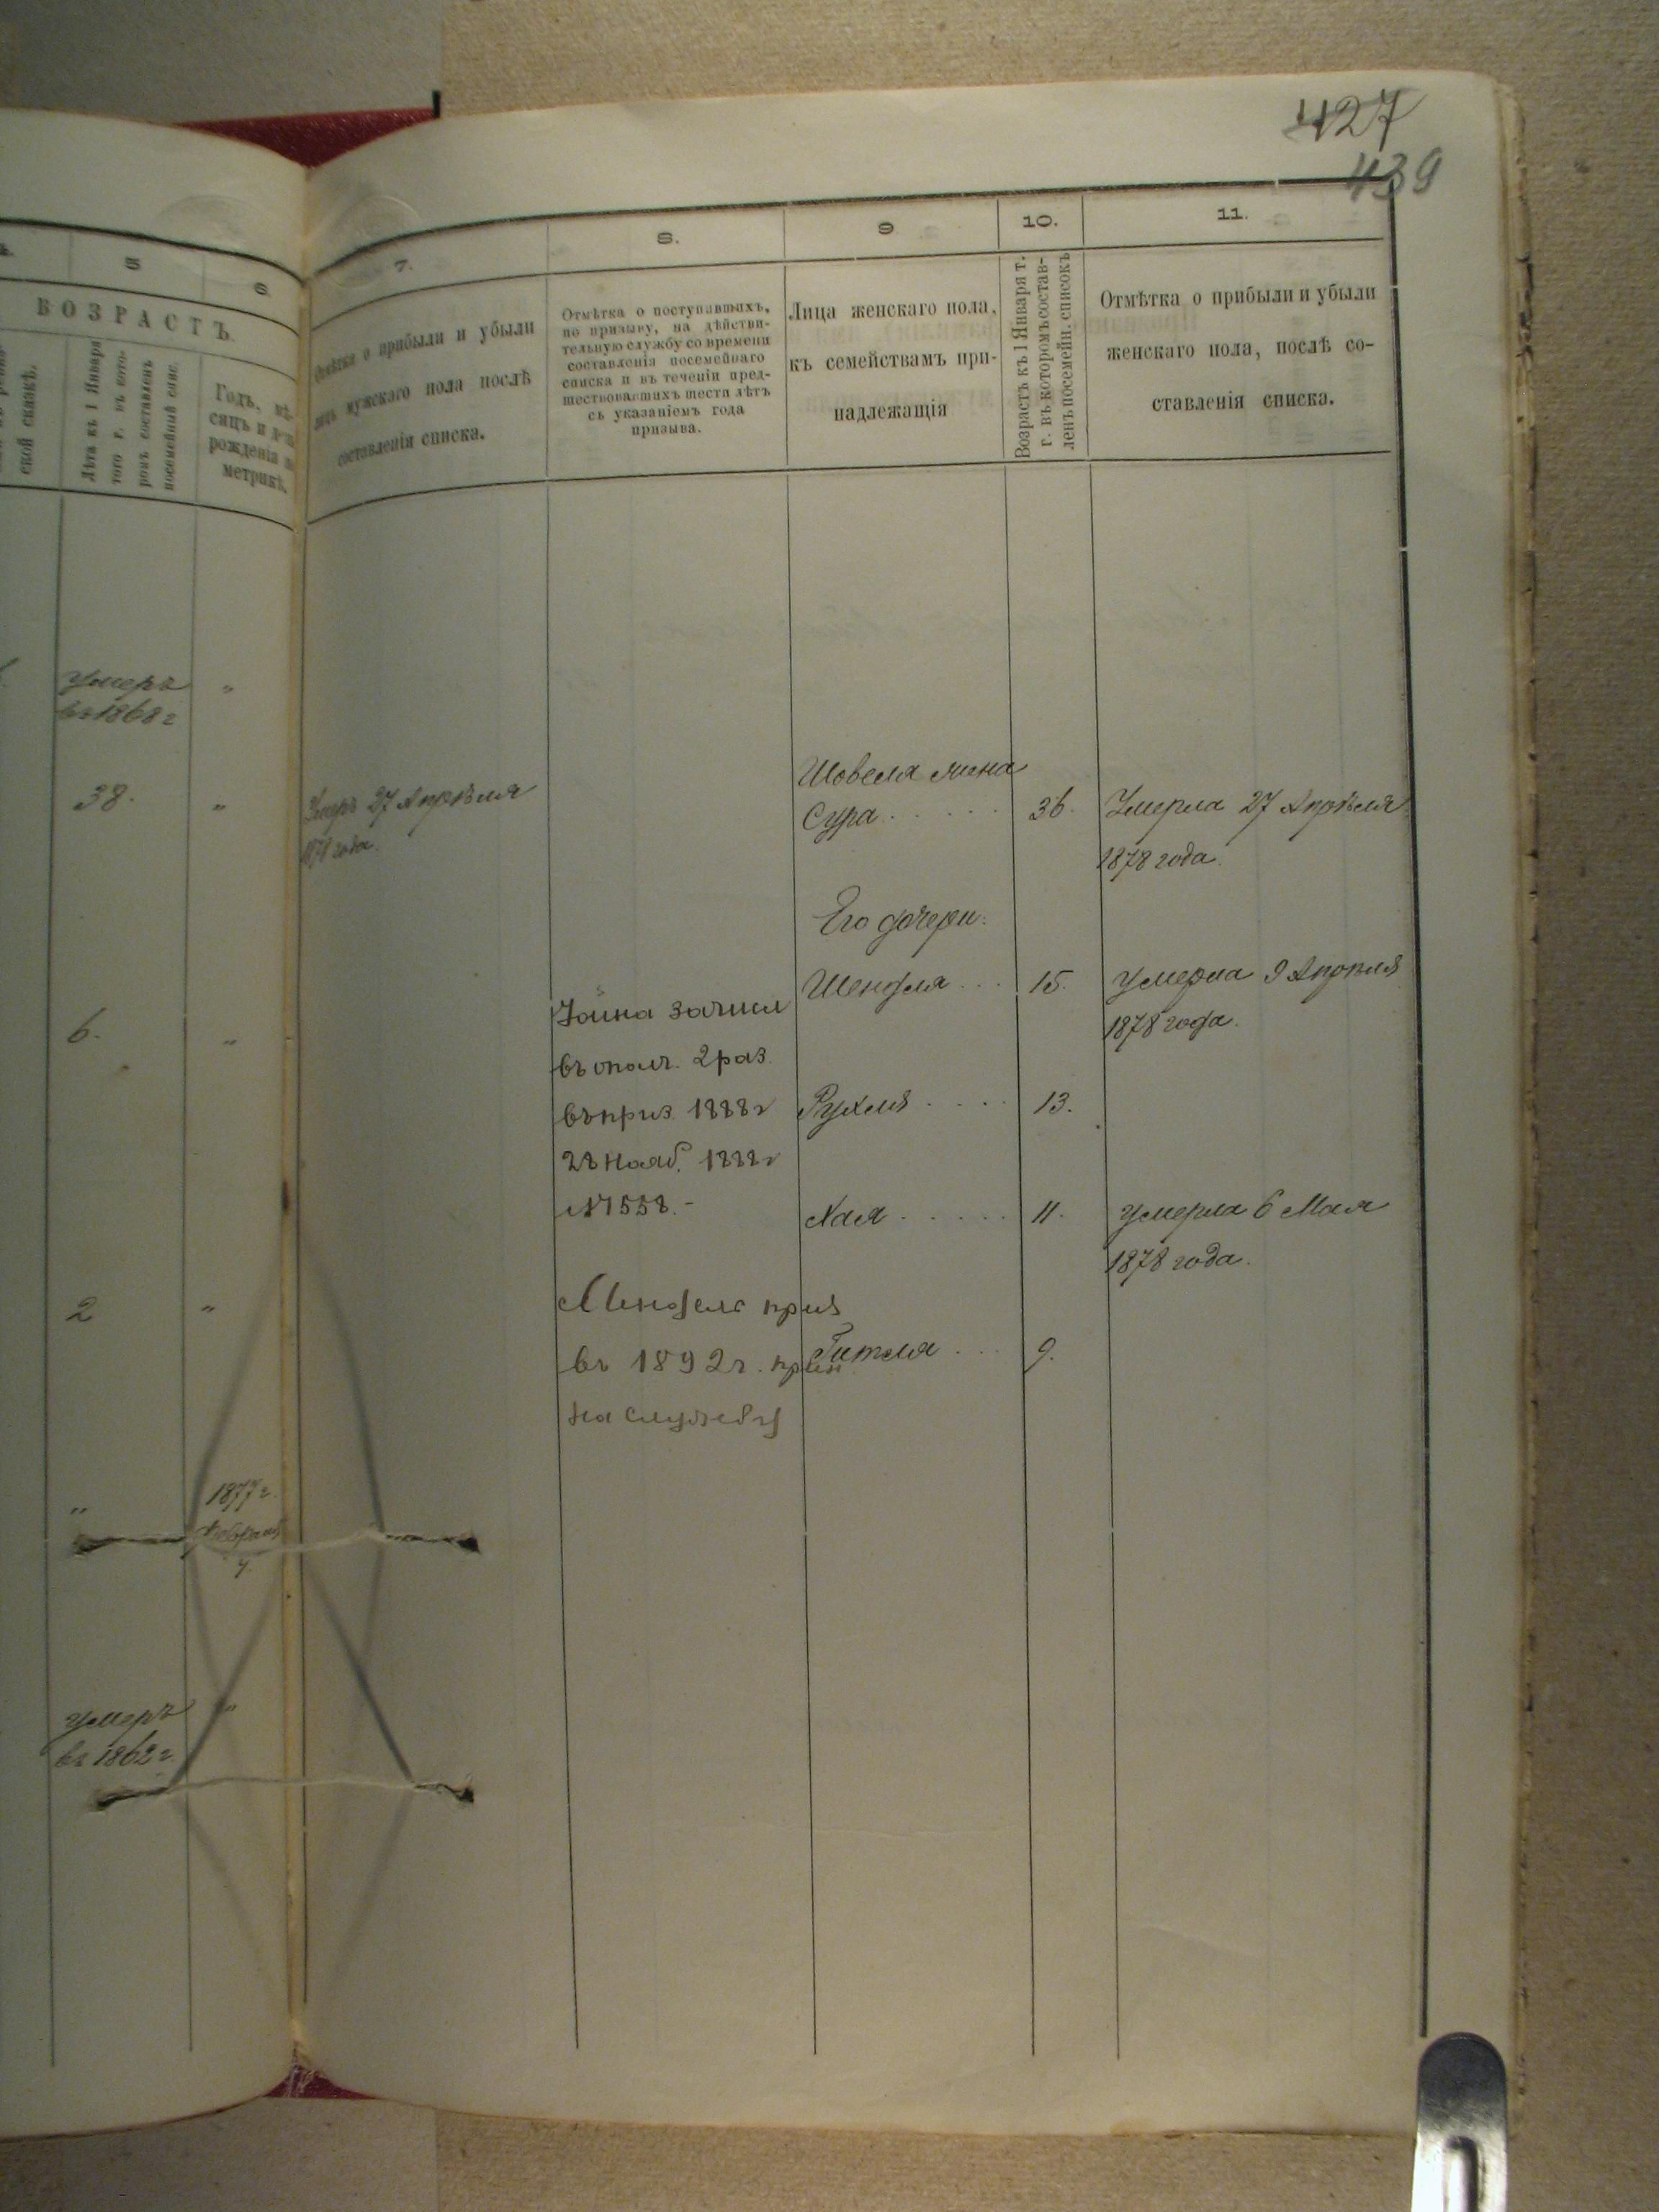 427
439
5
6
ВОЗРАСТЪ
ской сказкѣ.
Лѣта къ 1 Января
того г. въ кото-
ромъ составленъ
посемейный спис.
Годъ, мѣ-
сяцъ и день
рожденія по
метрикѣ.
Умеръ
въ 1868 г
"
38.
"
6.
"
2
"
"
1877 г.
Февраля
4
Умеръ
въ 1862 г.
"
7.
8.
9
10.
11.
Отмѣтка о прибыли и убыли
лицъ мужскаго пола послѣ
составленія списка.
Отмѣтка о поступавшихъ,
по призыву, на дѣйстви-
тельную службу со времени
составленія посемейнаго
списка и въ теченіи пред-
шествовавшихъ шести лѣтъ
съ указаніемъ года
призыва.
Лица женскаго пола,
къ семействамъ при-
надлежащія
Возрастъ къ 1 Января т.
г. въ которомъ состав-
ленъ посемейн. списокъ
Отмѣтка о прибыли и убыли
женскаго пола, послѣ со-
ставленія списка.
Умеръ 27 Апрѣля
1878 года.
Шовеля жена
Сура . . . . . 36. Умерла 27 Апрѣля
1878 года.
Его дочери:
Шендля . . . 15. Умерла 9 Апрѣля
1878 года.
зачисл
въ ополч. 2 раз.
въ приз. 1888 г
28 Нояб. 1888 г
№ 1558. -
Рухля . . . . 13.
Хая . . . . . 11. Умерла 6 Мая
1878 года.
Мендель приз
въ 1892 г. прин
на службу
Гитля . . . 9.